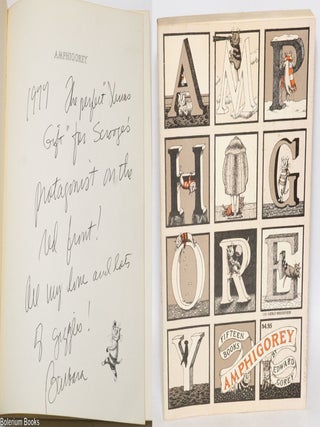 AMPHIGOREY
1977 The perfect "Xmas
Gift" for Scrooge's
protagonist on the
red front!
All my love and lots
of giggles!
Barbara
A M P
H I G
O R E
Y
FIFTEEN
BOOKS
AMPHIGOREY
$4.95
BY
EDWARD
GOREY
Bolerium Books